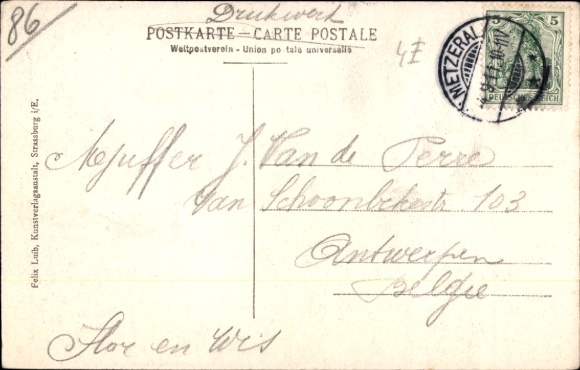 86
Drukwerk
POSTKARTE – CARTE POSTALE
Weltpostverein - Union postale universelle
4
5 5
DEUTSCHES REICH
METZERAL
Mejuffer J. Van de Perre
Van Schoonbekestr 103
Antwerpen
Belgie
Flor en Wis
Felix Luib, Kunstverlagsanstalt, Strassburg i/E.